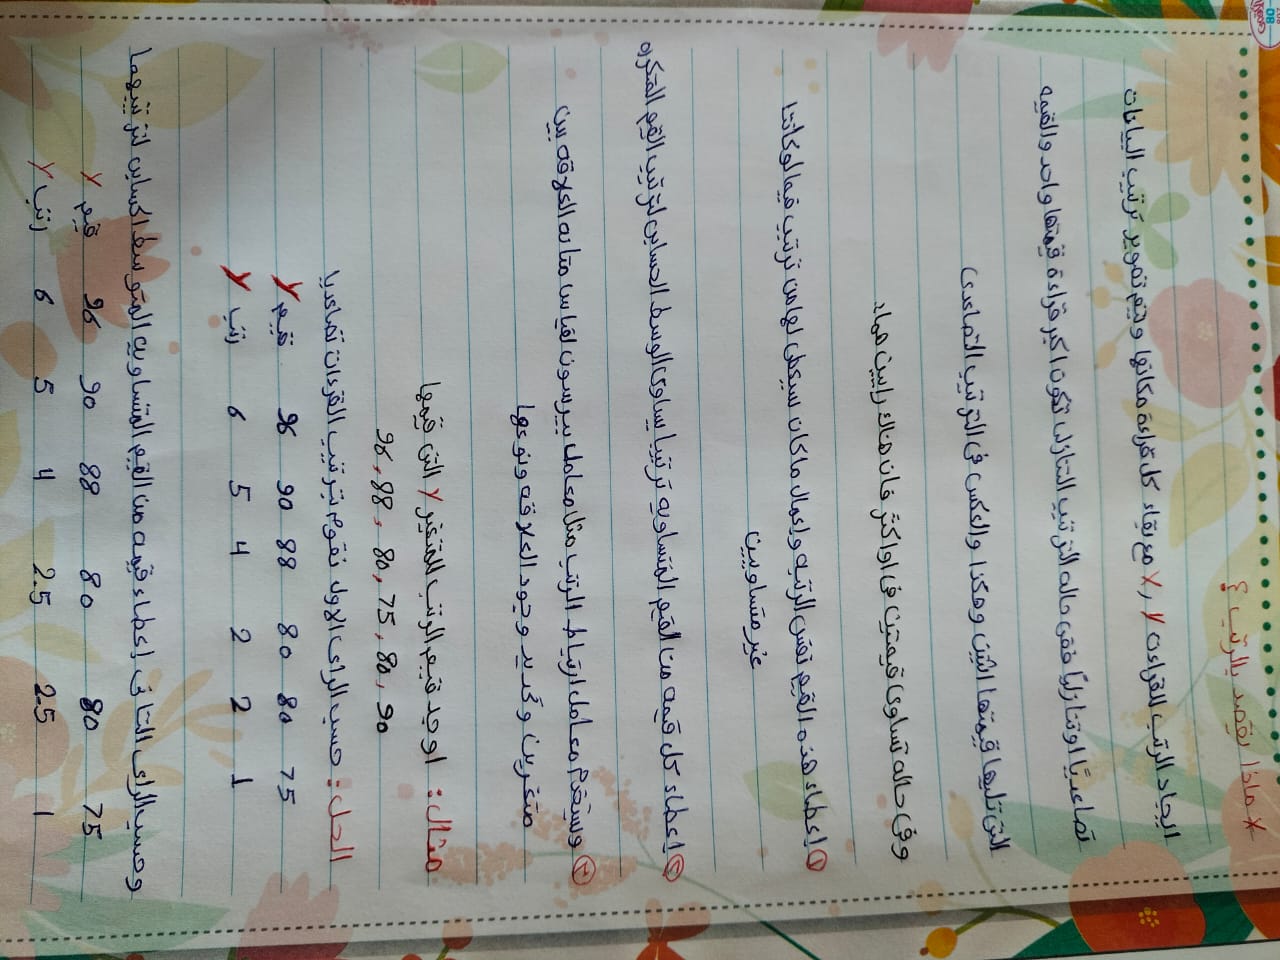 * ماذا يقصد بالرتب ؟
ايجاد الرتب للقراءت x , y مع بقاء كل قراءة مكانها ويتم تصوير ترتيب البيانات
تصاعديًا اوتنازليًا ففى حاله الترتيب التنازلى تكون اكبر قراءة قيمتها واحد والقيمه
التى تليها قيمتها اثنين وهكذا والعكس فى الترتيب التصاعدى
وفى حاله تساوى قيمتين فى اواكثر فان هناك رايين هما:
① إعطاء هذه القيم نفس الرتبه وإعمال ماكان سيعطى لهامن ترتيب فيما لوكانتا
غير متساويين
② إعطاء كل قيمه من القيم المتساويه ترتيبا يساوى الوسط الحسابى لترتيب القيم المتكراه
③ ويستخدم معامل ارتباط الرتب مثل معامل بيرسون لقياس متانه العلاقه بين
متغيرين وتحديد وجود العلاقه ونوعها
مثال : اوجد قيم الرتب للمتغير y التى قيمها
90 , 80 , 75 , 80 , 88 , 96
الحل : حسب الراى الاول نقوم بترتيب القرءات تصاعديا
قيم y 96 90 88 80 80 75
رتب y 6 5 4 2 2 1
وحسب الراى الثانى إعطاء قيمه من القيم المتساويه المتوسط الحسابى لترتيبهما
قيم y 96 90 88 80 80 75
رتب y 6 5 4 2.5 2.5 1